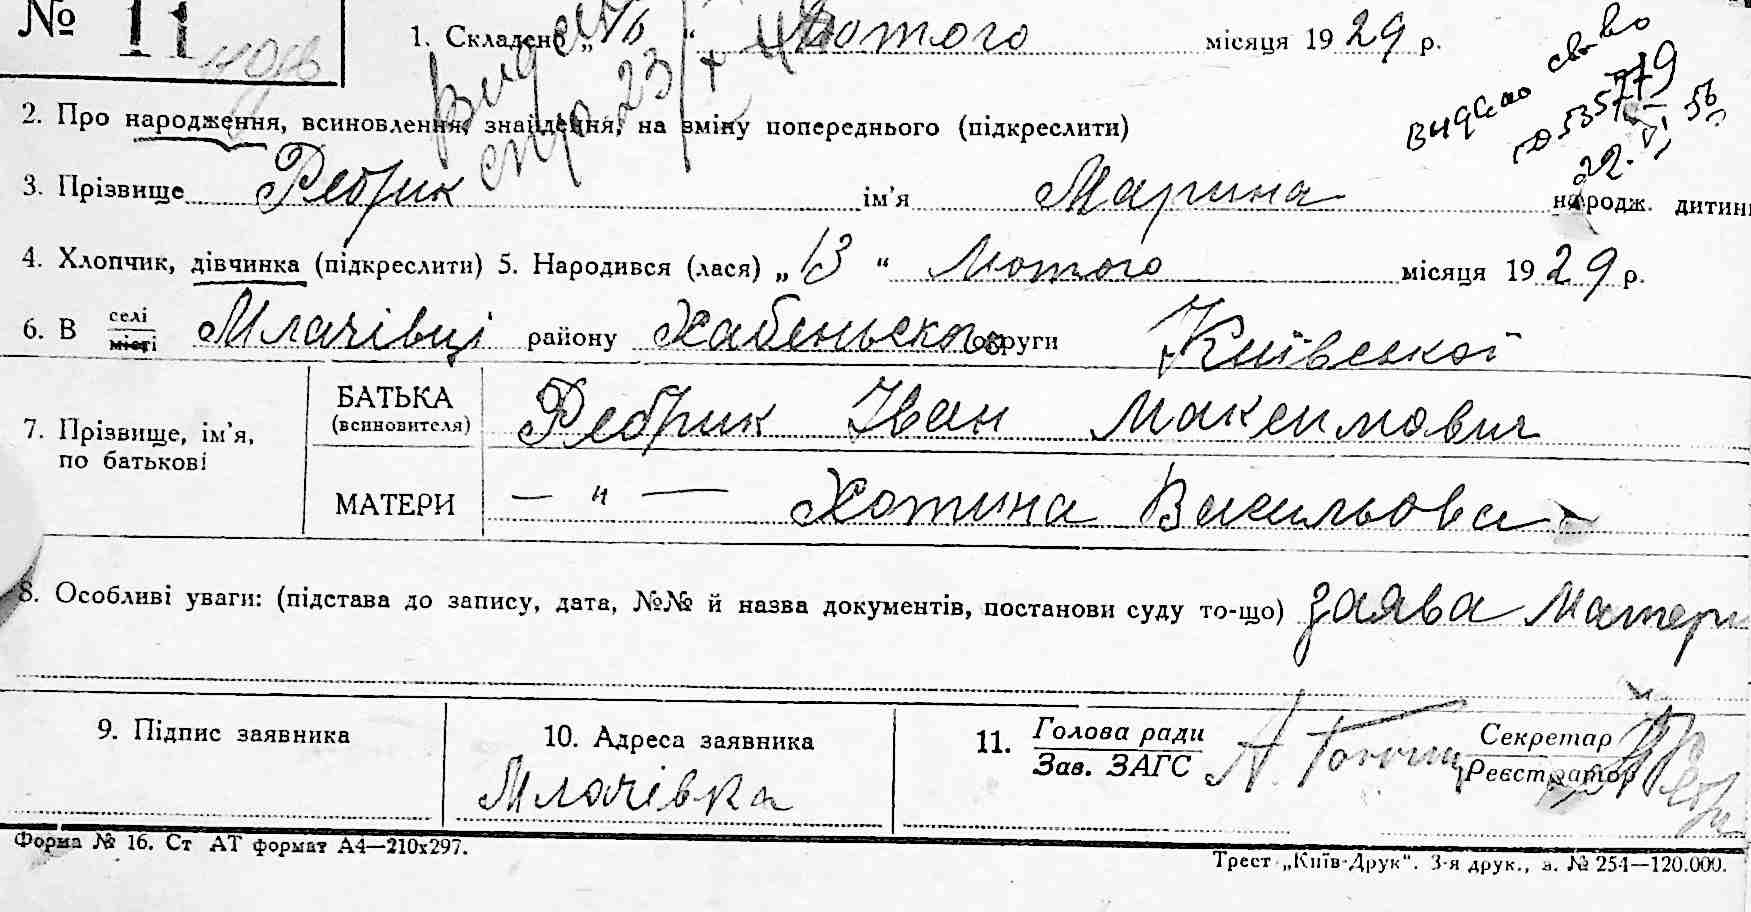 № 11
1. Складено „ “ Лютого місяця 1929 р.
Видано
видано св-во
535779
22. VI 56
2. Про народження, всиновлення, знайдення, на зміну попереднього (підкреслити)
3. Прізвище Ребрик ім’я Марина народж. дитини
4. Хлопчик, дівчинка (підкреслити) 5. Народився (лася) „13“ Лютого місяця 1929 р.
6. В селі Млачівці району Хабенського округи Київської
місті
7. Прізвище, ім’я, по батькові
БАТЬКА (всиновителя) Ребрик Іван Максимович
МАТЕРИ — „ — Хотина Васильова
8. Особливі уваги: (підстава до запису, дата, №№ й назва документів, постанови суду то-що) заява матери
9. Підпис заявника
10. Адреса заявника
Млачівка
11. Голова ради
Зав. ЗАГС
Секретар
Реєстратор
Форма № 16. Ст АТ формат А4—210x297.
Трест „Київ-Друк“. 3-я друк., з. № 254—120.000.